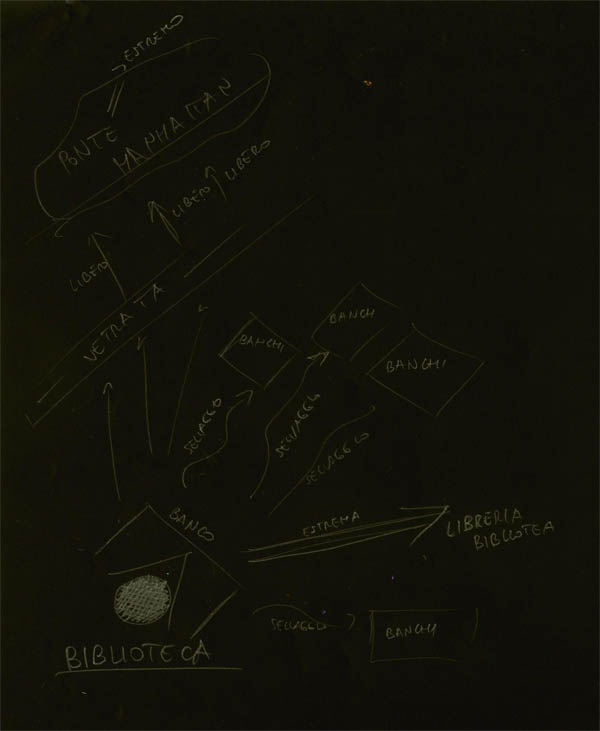 ESTREMO
PONTE
MANHATTAN
LIBERO
LIBERO
LIBERO
VETRATA
BANCHI
BANCHI
BANCHI
SELVAGGIO
SELVAGGIO
SELVAGGIO
BANCO
ESTREMA
LIBRERIA
BIBLIOTEA
SELVAGGIO
BANCHI
BIBLIOTECA